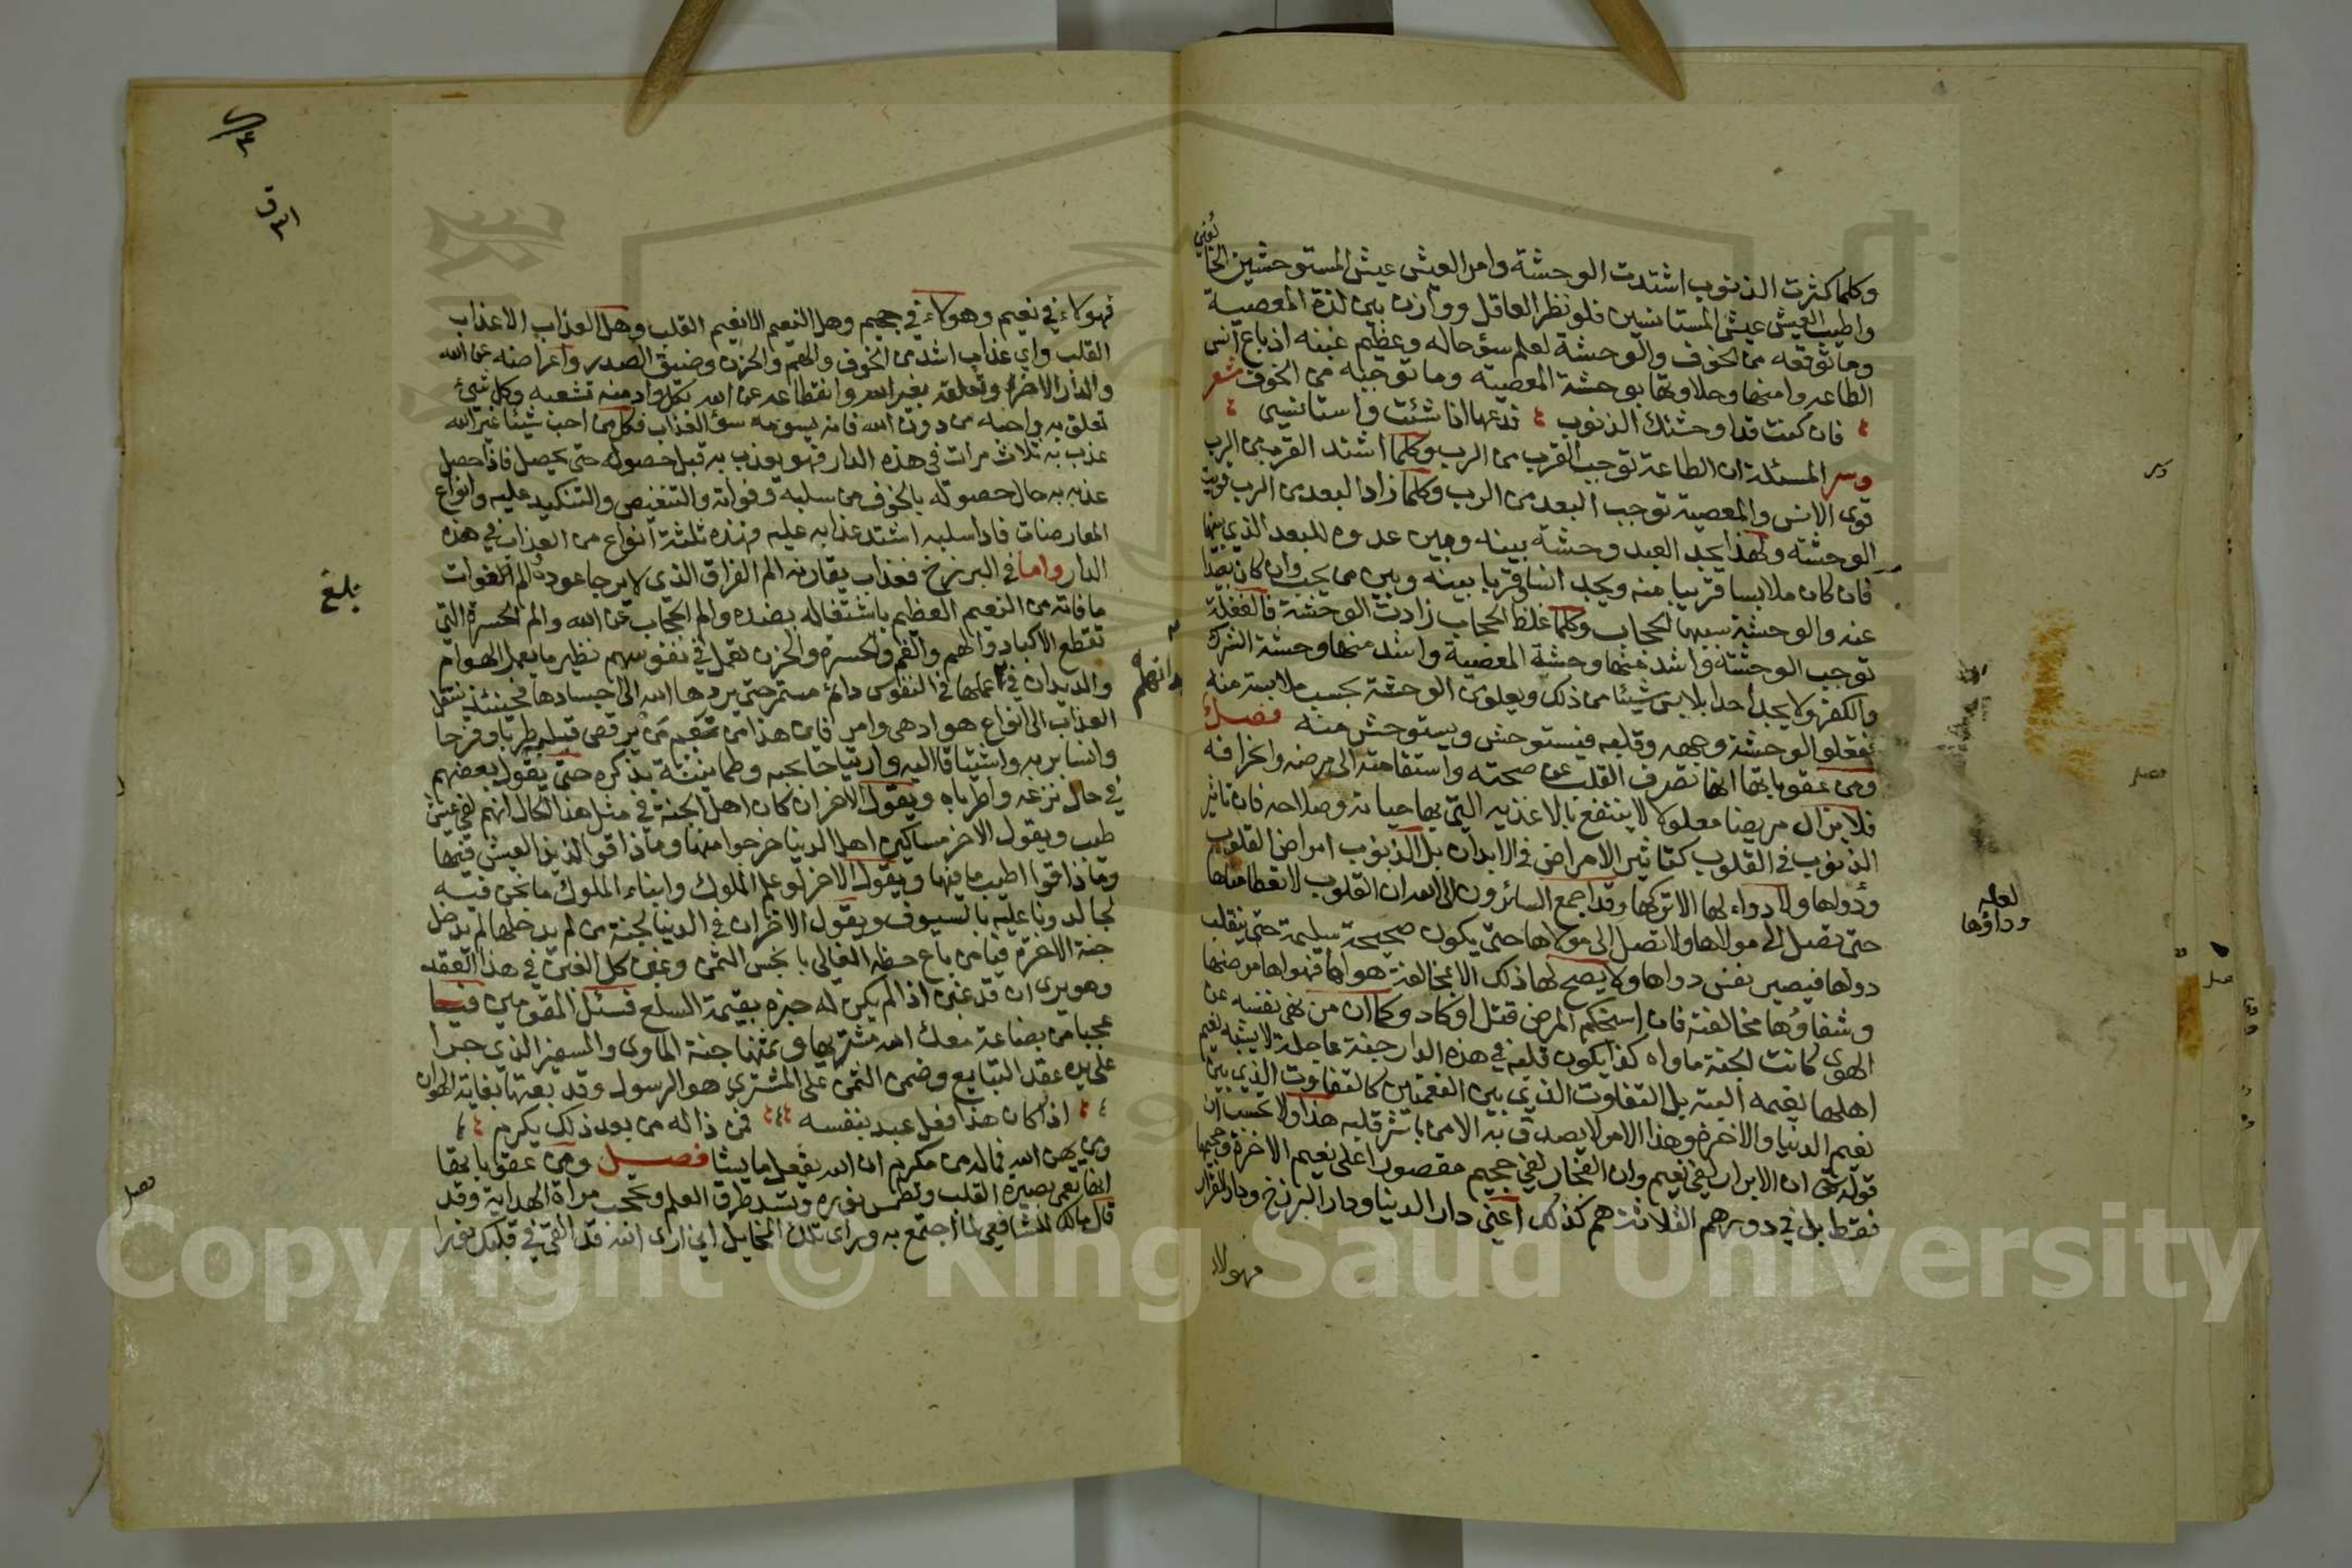 وكلما كثرت الذنوب اشتدت الوحشة وامر العيش عيش المستوحشين الخائفين
واطيب العيش عيش المستانسين فلو نظر العاقل ووازن بين لذة المعصية
وما توقعه من الخوف والوحشة لعلم سوٓ حاله وعظيم غبنه اذ باع انس
الطاعه وامنها وحلاوتها بوحشة المعصيه وما توجبه من الخوف شعر
فان كنت قد اوحشتك الذنوب فدعها اذا شئت واستانسي
وسر المسئلة ان الطاعة توجب القرب من الرب وكلما اشتد القرب من الرب
قوى الانس والمعصية توجب البعد من الرب وكلما زاد البعد من الرب قويت
الوحشة ولهذا يجد العبد وحشة بينه وبين عدوه للبعد الذي بينهما
فان كان ملابسا قريبا منه ويجد انسا قربا بينه وبين من يحب وان كان بعيدا
عنه والوحشة سببها الحجاب وكلما غلظ الحجاب زادت الوحشة فالغفلة
توجب الوحشة واشد منها وحشة المعصية واشد منها وحشة الشرك
والكفر ولا يجد احدا يلابس شيئا من ذلك ويعلوه من الوحشة بحسب ملابسته منه
فتعلو الوحشة وجهه وقلبه فيستوحش ويستوحش منه فصل
ومن عقوباتها انها تصرف القلب عن صحته واستقامته الى مرضه وانحرافه
فلا يزال مريضا معلولا لا ينتفع بالاغذيه التي بها حياته وصلاحه فان تاثير
الذنوب في القلوب كتاثير الامراض في الابدان بل الذنوب امراض القلوب
ودواها ولا دواء لها الا تركها وقد اجمع السائرون الى الله ان القلوب لا تعطا مناها
حتى تصل الى مولاها ولا تصل الى مولاها حتى يكون صحيحة سليمة حتى ينقلب
دواها فيصير نفس دواها ولا يصح لها ذلك الا بمخالفة هواها فهواها مرضها
وشفاؤها مخالفته فان استحكم المرض قتل او كاد وكما ان من نهى نفسه عن
الهوى كانت الجنة ماواه كذا يكون قلبه في هذه الدار جنة عاجلة لا يشبه نعيم
اهلها نعيمه البته بل التفاوت الذي بين النعمتين كالتفاوت الذي بين
نعيم الدنيا والاخرة وهذا الامر لا يصدق به الا من باشر قلبه هذا ولا تحسب ان
قوله تعالى ان الابرار لفي نعيم وان الفجار لفي جحيم مقصورا على نعيم الاخرة وجحيمها
فقط بل في دورهم الثلاثة هم كذلك اعني دار الدنيا ودار البرزخ ودار القرار
فهولاء
لعله
وداؤها
فهولاء في نعيم وهولاء في جحيم وهل النعيم الا نعيم القلب وهل العذاب الا عذاب
القلب واي عذاب اشد من الخوف والهم والحزن وضيق الصدر واعراضه عن الله
والدار الاخرة وتعلقه بغير الله وانقطاعه عن الله بكل واد منه شعبه وكل شيئ
تعلق به واحبه من دون الله فانه يسومه سوٓ العذاب فكل من احب شيئا غير الله
عذب به ثلاث مرات في هذه الدار فهو يعذب به قبل حصوله حتى يحصل فاذا حصل
عذب به حال حصوله بالخوف من سلبه وفواته والتنغيص والتنكيد عليه وانواع
المعارضات فاذا سلبه اشتد عذابه عليه فهذه ثلثة انواع من العذاب في هذه
الدار واما في البرزخ فعذاب يقارنه الم الفراق الذي لا يرجا عوده والم الفوات
ما فاته من النعيم العظيم باشتغاله بضده والم الحجاب عن الله والم الحسرة التي
تقطع الاكباد والهم والغم والحسرة والحزن تعمل في نفوسهم نظير ما يعمل الهوام
والديدان في عملها في النفوس دائم مستمر حتى يردها الله الى اجسادها فحينئذ ينتقل
العذاب الى انواع هو ادهى وامر فاين هذا من نعيم من يرقص قلبه طربا وفرحا
وانسا بربه واشتياقا اليه وارتياحا بحبه وطمانينة بذكره حتى يقول بعضهم
في حال نزعه واطرباه ويقول الاخر ان كان اهل الجنة في مثل هذا الحال انهم لفي عيش
طيب ويقول الاخر مساكين اهل الدنيا خرجوا منها وما ذاقوا لذيذ العيش فيها
وما ذاقوا اطيب ما فيها ويقول الاخر لو علم الملوك وابناء الملوك ما نحن فيه
لجالدونا عليه بالسيوف ويقول الاخر ان في الدنيا لجنة من لم يدخلها لم يدخل
جنة الاخرة فيا من باع حظه الغالي بابخس الثمن وغبن كل الغبن في هذا العقد
وهو يرى ان قد غبن اذا لم يكن له خبره بقيمة السلع فسئل المقومين فيا
عجبا من بضاعة معك الله مشتريها وثمنها جنة الماوى والسفير الذي جرا
على يده عقد التبايع وضمن الثمن على المشتري هو الرسول وقد بعتها بغاية الهوان
اذا كان هذا فعل عبد بنفسه فمن ذا له من بعد ذلك يكرم
ومن يهن الله فماله من مكرم ان الله يفعل ما يشا فصل ومن عقوباتها
انها تعمى بصيرة القلب وتطمس نوره وتسد طرق العلم وتحجب مراة الهداية وقد
قال مالك للشافعي لما اجتمع به وراى تلك المخايل اني ارى الله قد القى في قلبك نورا
بلغ